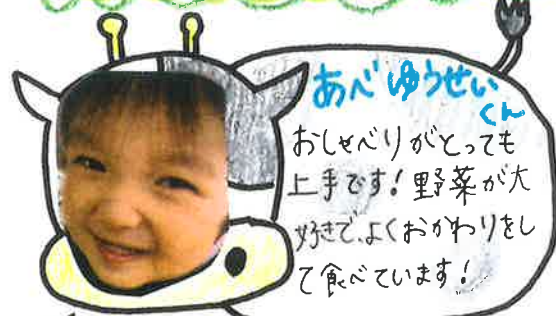 あべ ゆうせい
くん
おしゃべりがとっても
上手です!野菜が大
好きで、よくおかわりをし
て食べています!